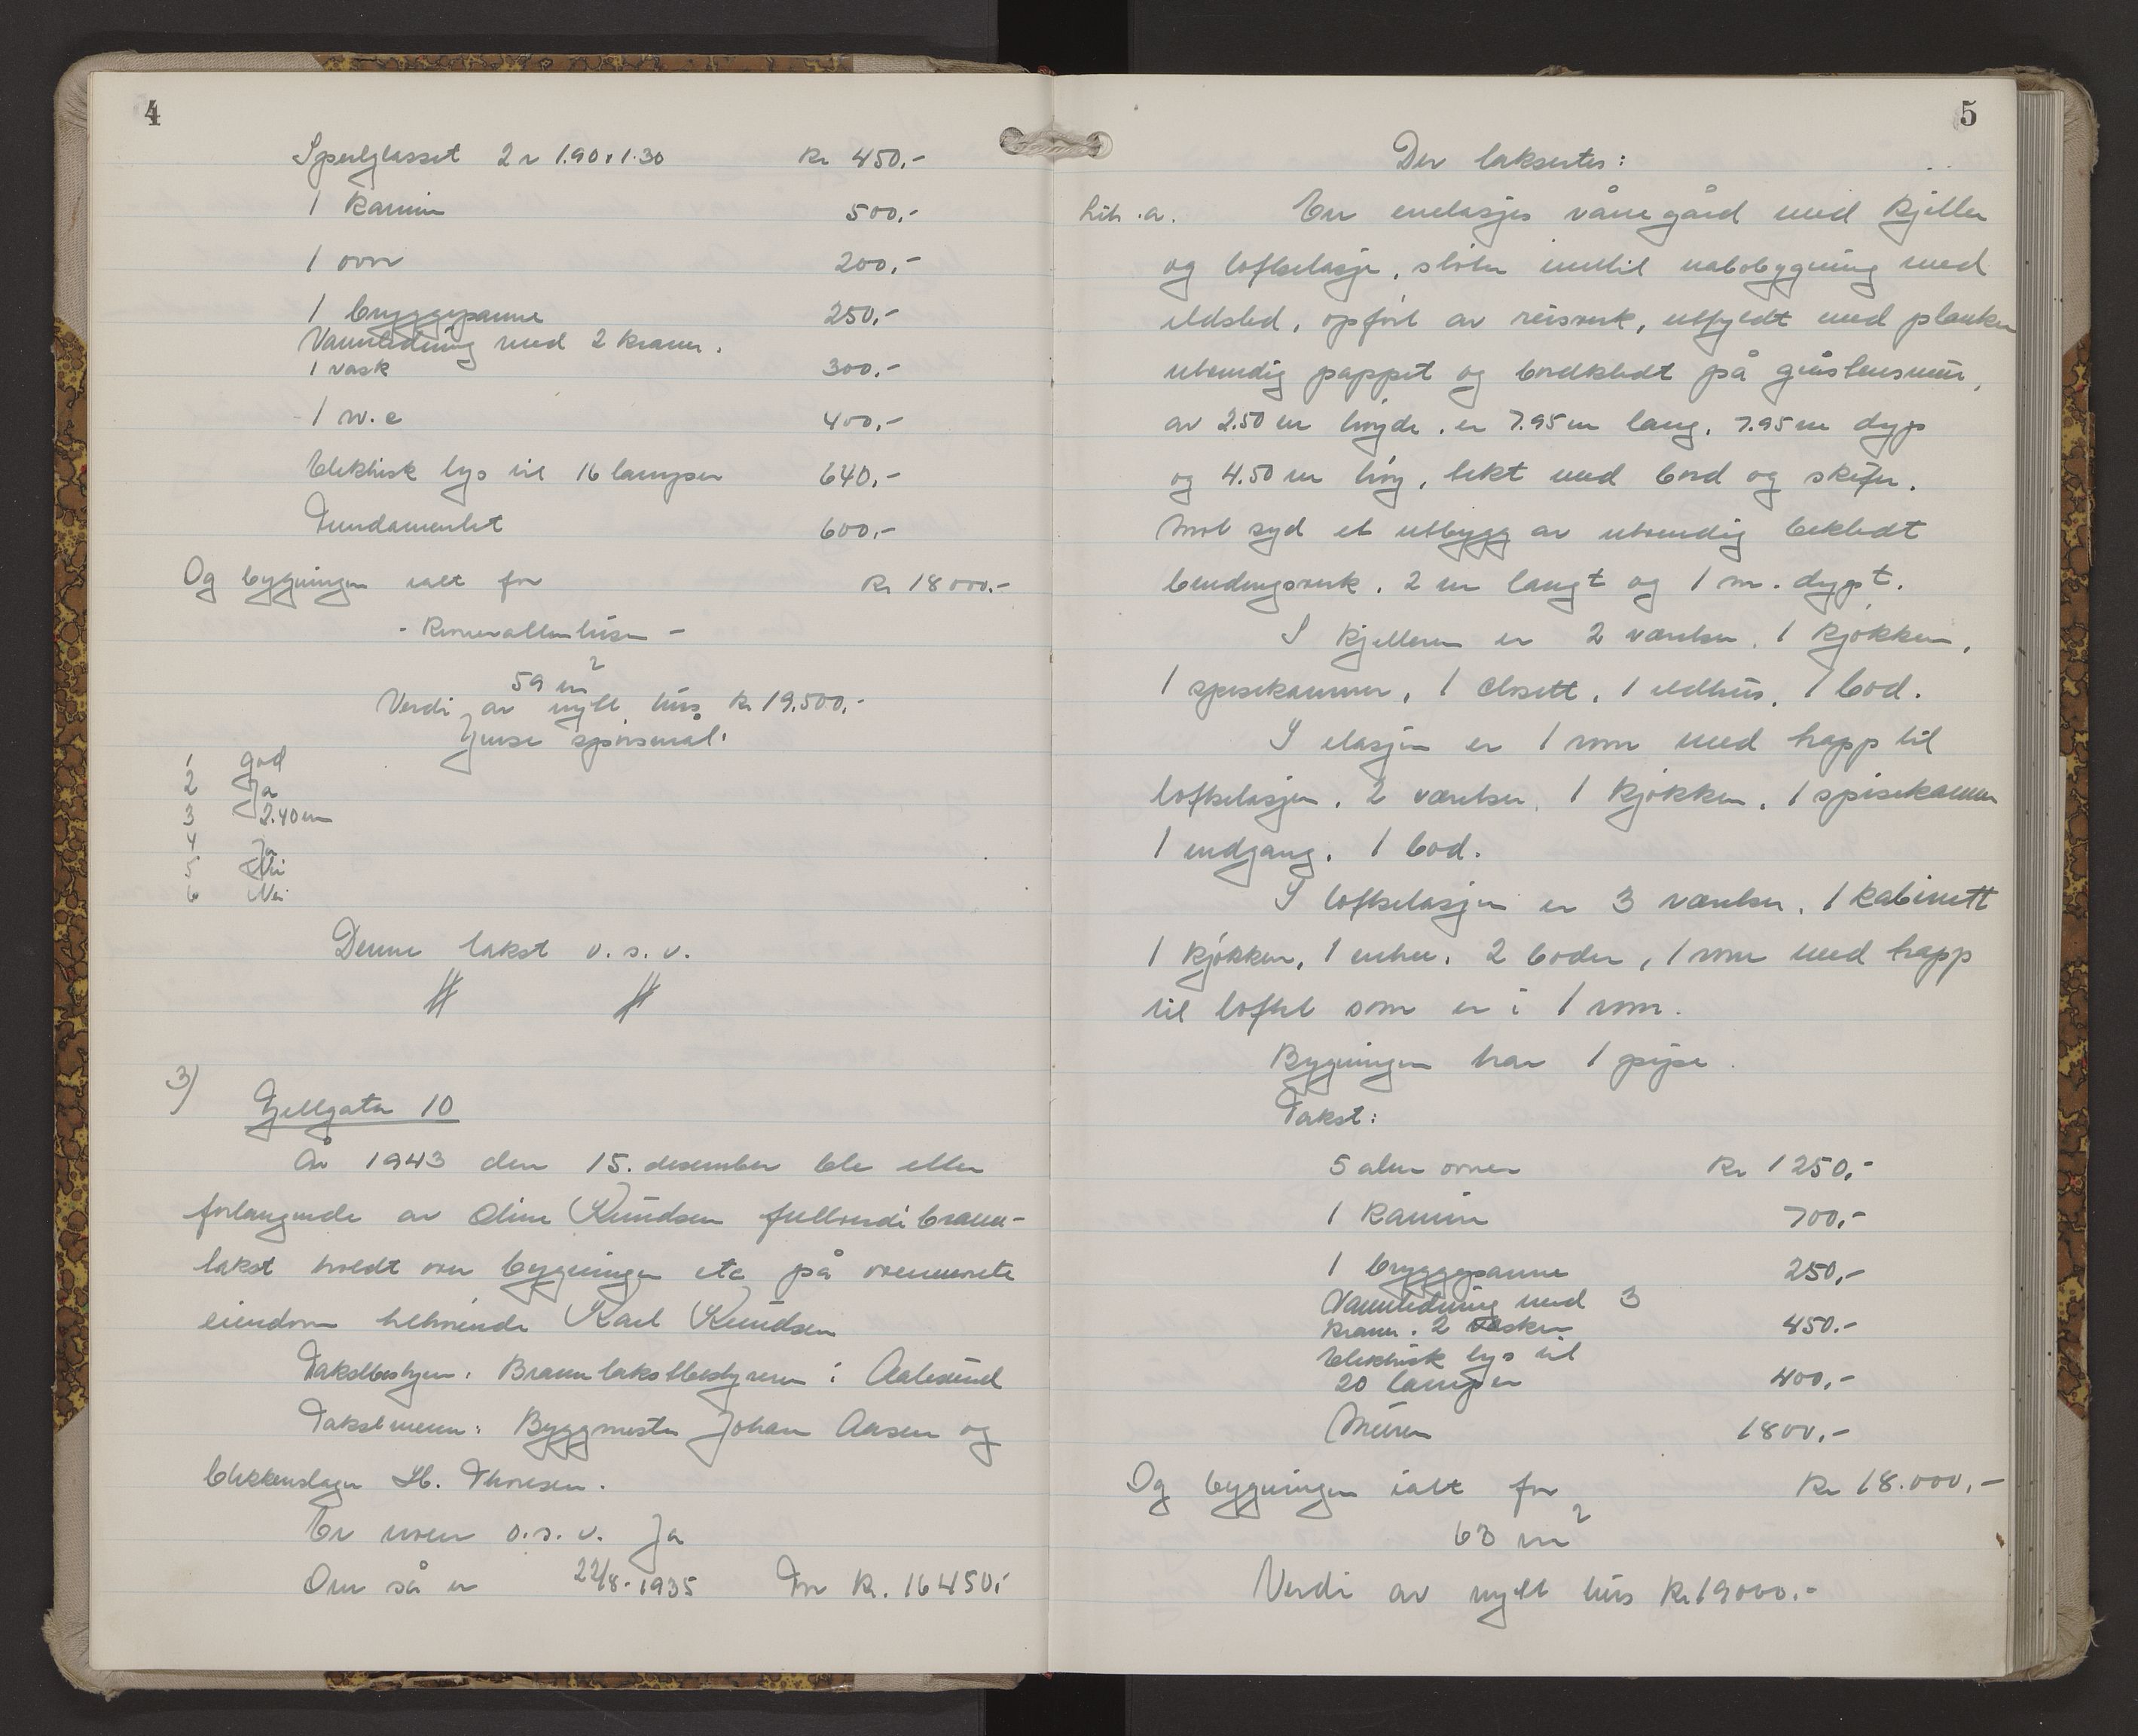 4
Speilglasset 2 à 1.90 x 1.30 Kr 450.-
1 Kamin 500.-
1 ovn 200.-
1 bryggepanne 250.-
Vannledning med 2 kraner.
1 vask 300.-
1 w.c 400.-
Elektrisk lys til 16 lamper 640.-
Fundamentet 600.-
Og bygningen ialt for Kr 18000.-
59 m²
Verdi av nytt hus Kr 19.500.-
spørsmål:
1 god
2 Ja
3 2.40 m
4 Ja
5 Nei
6 Nei
Denne takst o.s.v.
3)
Fjellgata 10
År 1943 den 15. desember ble etter
forlangende av Oline Knudsen fullverdi brann-
takst holdt over bygningen etc på ovennevnte
eiendom tilhørende Karl Knudsen
Takstbestyrer: Branntakstbestyreren i Aalesund
Takstmenn: Byggmester Johan Aasen og
blikkenslager H. Thoresen.
Er noen o.s.v. Ja
Om så er 22/8-1935 For Kr. 16450.-
5
Der takseres:
Litr. a. En enetasjes våningård med Kjeller
og loftsetasje, støter inntil nabobygning med
ildsted, opført av reisverk, utfyldt med planker
utvendig pappet og bordkledt på gråstensmur,
av 2.50 m høyde, er 7.95 m lang, 7.95 m dyp
og 4.50 m høy, tekt med bord og skifer.
Mot syd et utbygg av utvendig bekledt
bindingsverk, 2 m langt og 1 m. dypt.
I Kjelleren er 2 værelser, 1 Kjøkken,
1 spisekammer, 1 closett, 1 ildhus, 1 bod.
I etasjen er 1 rom med trapp til
loftsetasjen, 2 værelser, 1 Kjøkken, 1 spisekammer
1 indgang, 1 bod.
I loftsetasjen er 3 værelser, 1 Kabinett
1 Kjøkken, 1 entre, 2 boder, 1 rom med trapp
til loftet som er i 1 rom.
Bygningen har 1 pipe.
Takst:
5 alm ovner Kr 1250.-
1 Kamin 700.-
1 bryggepanne 250.-
Vannledning med 3
Kraner. 2 vasker 450.-
Elektrisk lys til
20 lamper 400.-
Muren 1800.-
Og bygningen ialt for Kr 18.000.-
63 m²
Verdi av nytt hus Kr 19000.-